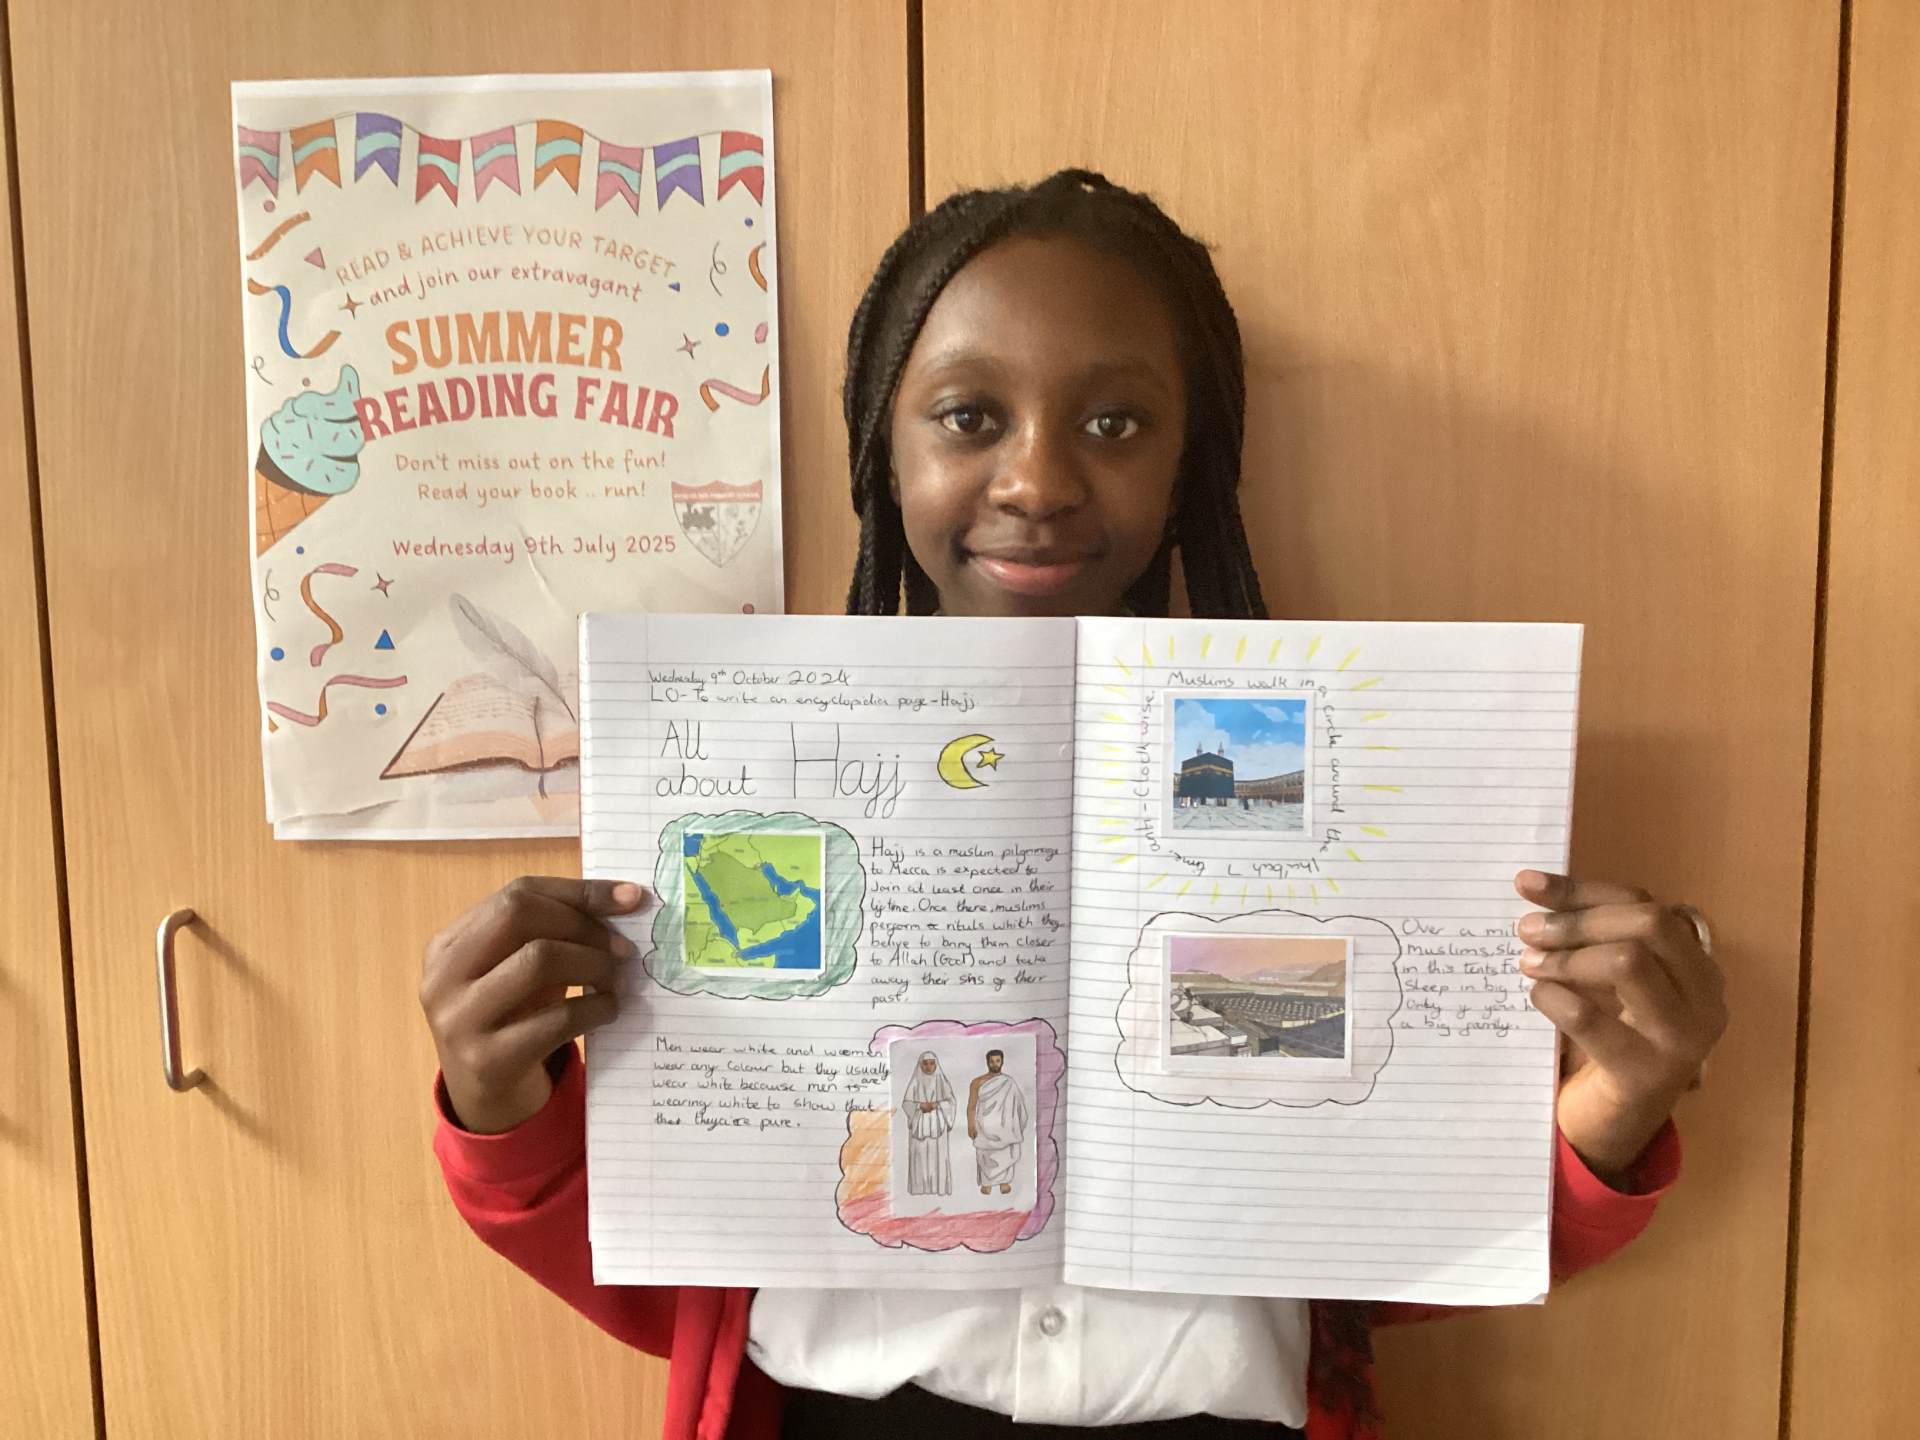 READ & ACHIEVE YOUR TARGET
and join our extravagant
SUMMER
READING FAIR
Don't miss out on the fun!
Read your book .. run!
Wednesday 9th July 2025
Wednesday 9th October 2024
LO- To write an encyclopidia page - Hajj.
All
about
Hajj
Hajj is a muslim pilgrimage
to Mecca is expected to
Join at least once in their
lifetime. Once there, muslims
perform rituls which they
belive to bring them closer
to Allah (God) and take
away their sins of their
past.
Men wear white and women
wear any colour but they usually
wear white because men are
wearing white to show that
they are pure.
Muslims walk in
a circle around the
7 time,
anti-Clockwise.
Over a mil
muslims,
in this tents
sleep in big
Only if you h
a big family.